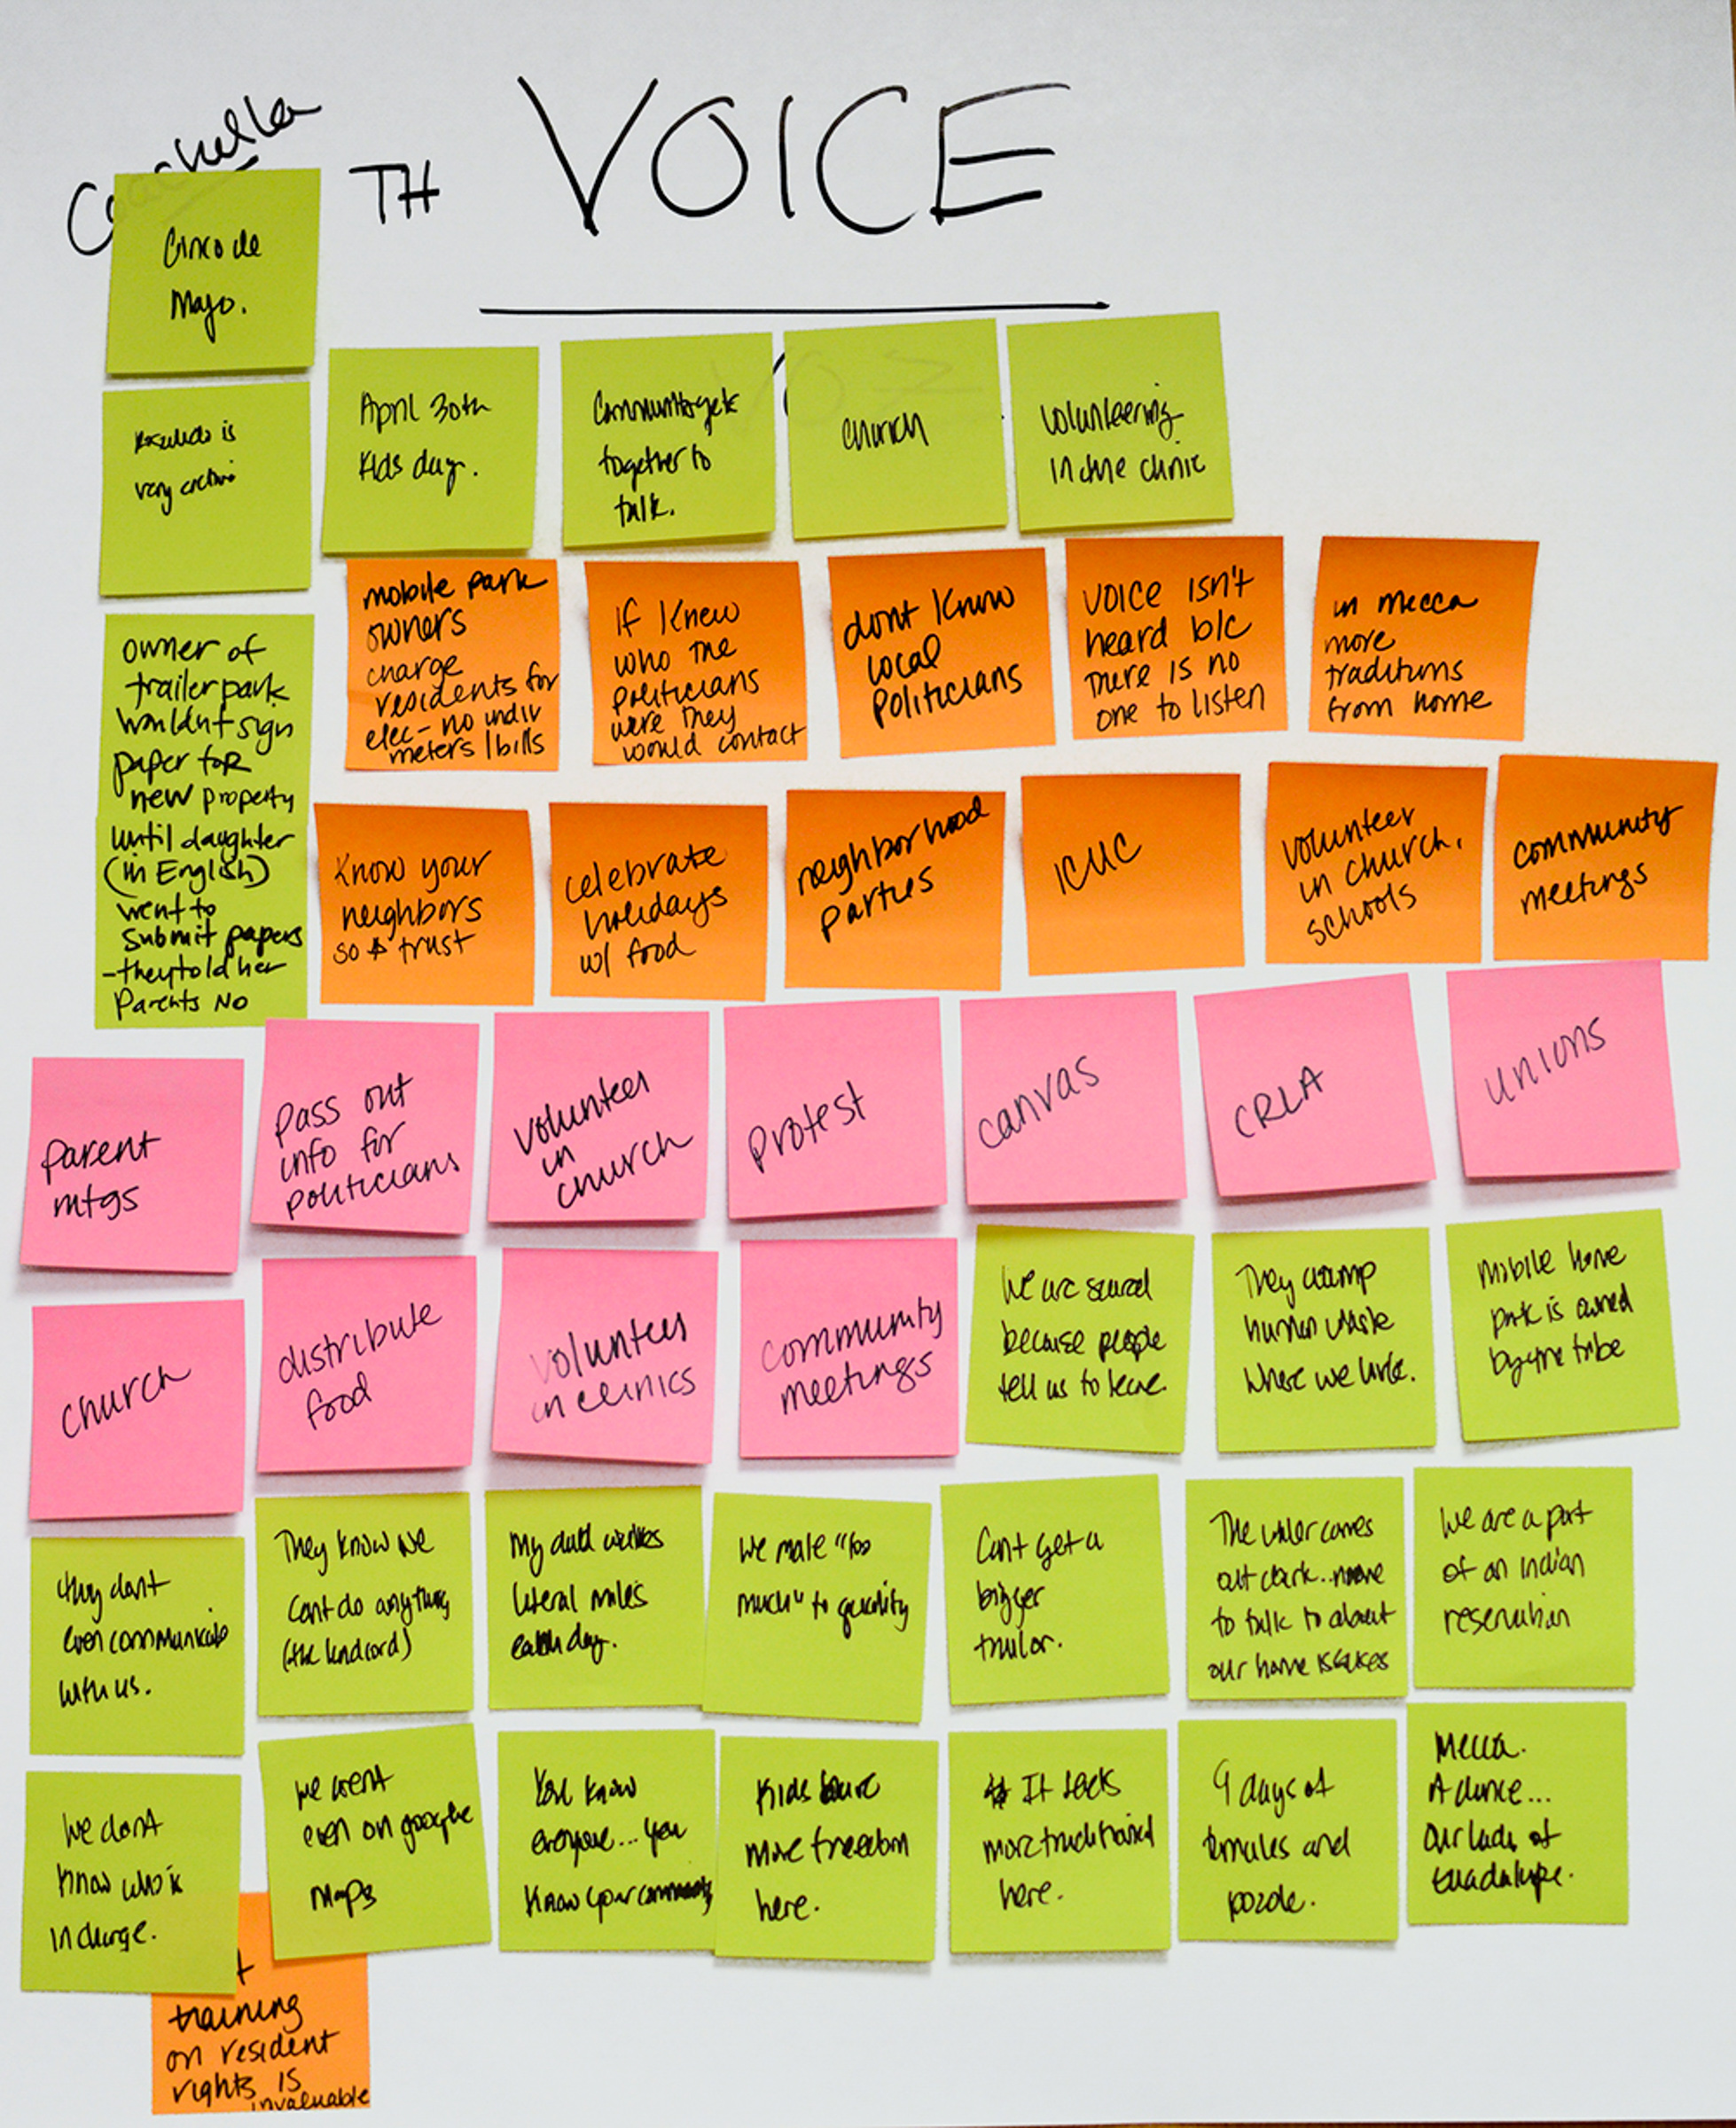 Coachella
TH VOICE
VOZ
Cinco de
Mayo.
is
very
April 30th
Kids day.
Community gets
together to
talk.
church
volunteering
in the clinic
owner of
trailer park
wouldnt sign
paper for
new property
until daughter
(in English)
went to
submit papers
- they told her
parents NO
mobile park
owners
charge
residents for
elec - no indiv
meters / bills
if knew
who the
politicians
were they
would contact
dont know
local
politicians
VOICE isn't
heard b/c
there is no
one to listen
in mecca
more
traditions
from home
Know your
neighbors
so trust
celebrate
holidays
w/ food
neighborhood
parties
ICUC
volunteer
in church,
schools
community
meetings
parent
mtgs
pass out
info for
politicians
volunteer
in
church
protest
canvas
CRLA
unions
church
distribute
food
volunteer
in clinics
community
meetings
We are scared
because people
tell us to leave.
They dump
human waste
where we live.
Mobile home
park is owned
by the tribe
they dont
even communicate
with us.
They know we
cant do anything
(the landlord)
My dad walks
literal miles
each day.
We make "too
much" to qualify
Cant get a
bigger
trailor.
The water comes
out dark.. none
to talk to about
our home issues
We are a part
of an Indian
reservation
We dont
know who is
in charge.
We arent
even on google
maps
You know
everyone... you
know your community
Kids have
more freedom
here.
It feels
more traditional
here.
9 days of
tamales and
pozole.
Mecca.
A dance...
Our lady of
Guadalupe.
training
on resident
rights is
invaluable